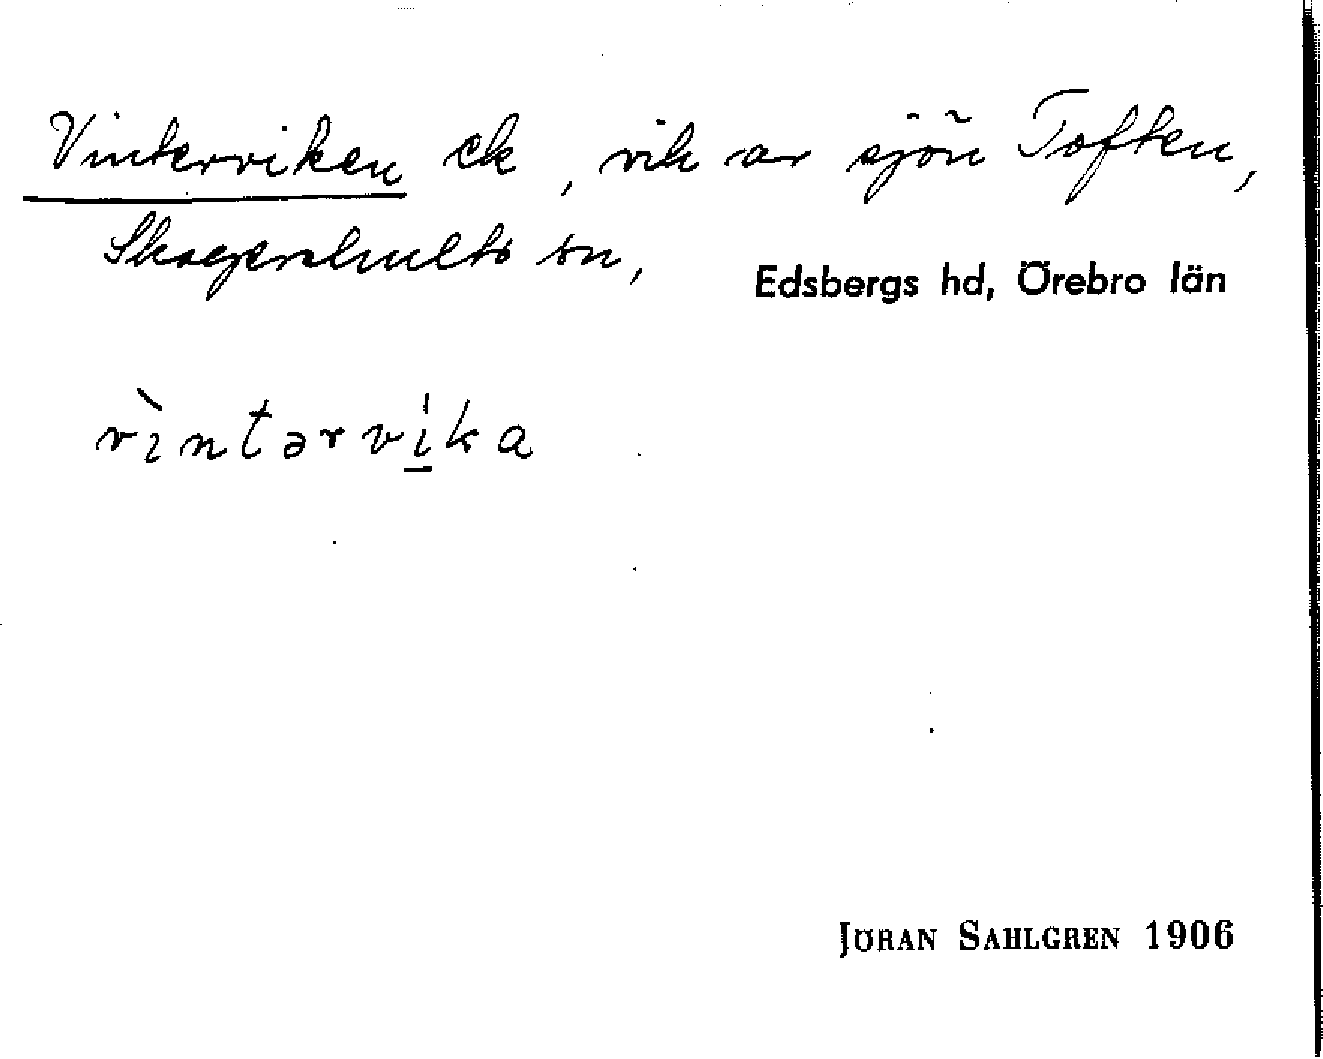 Vinterviken ek, vik av sjön Toften,
Skagershults sn, Edsbergs hd, Örebro län
vìntərvi̲ka
JÖRAN SAHLGREN 1906